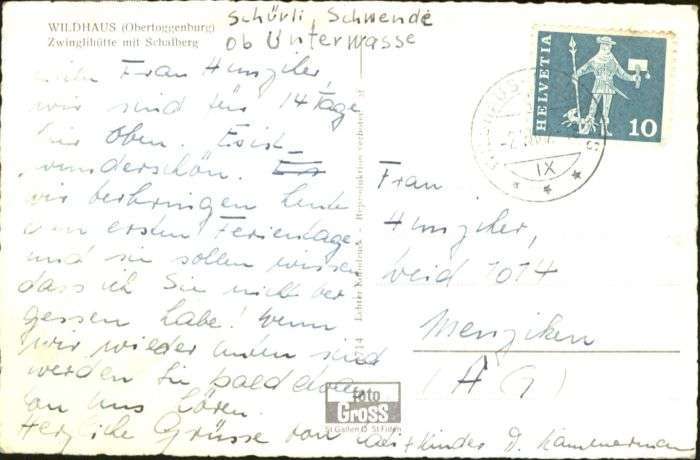 WILDHAUS (Obertoggenburg)
Zwinglihütte mit Schafberg
Schürli, Schwende
ob Unterwasse
Frau Hunziker,
wir sind für 14 Tage
hier oben. Es ist
wunderschön.
wir verbringen heute
den ersten Ferientage
und sie sollen wissen
dass ich Sie nicht ver
gessen habe! Wenn
wir wieder unten sind
werden Sie bald etwas
von uns hören.
Herzliche Grüsse von
+ Kinder D. Kammerman
Reproduktion verboten
foto
GROSS
St. Gallen O St. Fiden
HELVETIA
10
IX
Frau
Hunziker,
weid 1014
Menziken
(AG)